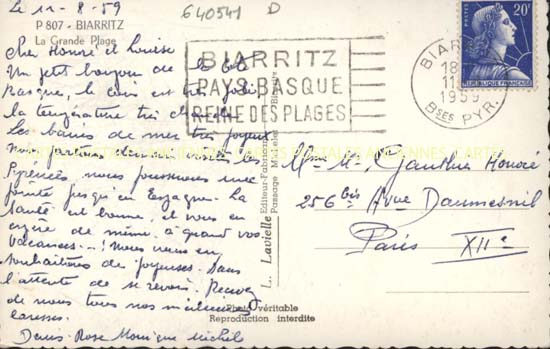 Le 11-8-59
640541 D
P 807 - BIARRITZ
La Grande Plage
Cher Honoré et Louise
Un petit bonjour de la côte
Basque, le coin est très joli
la température très
Les bains de mer très joyeux
Nous partons demain visiter les
Pyrénées, nous pousserons une
pointe jusqu'en Espagne. La
Santé est bonne, et vous en
de même. à quand vos
Vacances --! Nous vous en
souhaitons de joyeuses. Dans
l'attente de se revoir. Recevez
de nous tous nos meilleures
caresses.
Denis-Rose Monique Michel
BIARRITZ
PAYS BASQUE
REINE DES PLAGES
BIARRITZ
18
11
1959
BSES PYR.
20F
REPUBLIQUE FRANÇAISE
L. Lavielle Editeur-Fabricant
Passage Biarritz
Mme Mr Gauthier Honoré
256 bis Avue Daumesnil
Paris XIIe
Photo véritable
Reproduction interdite